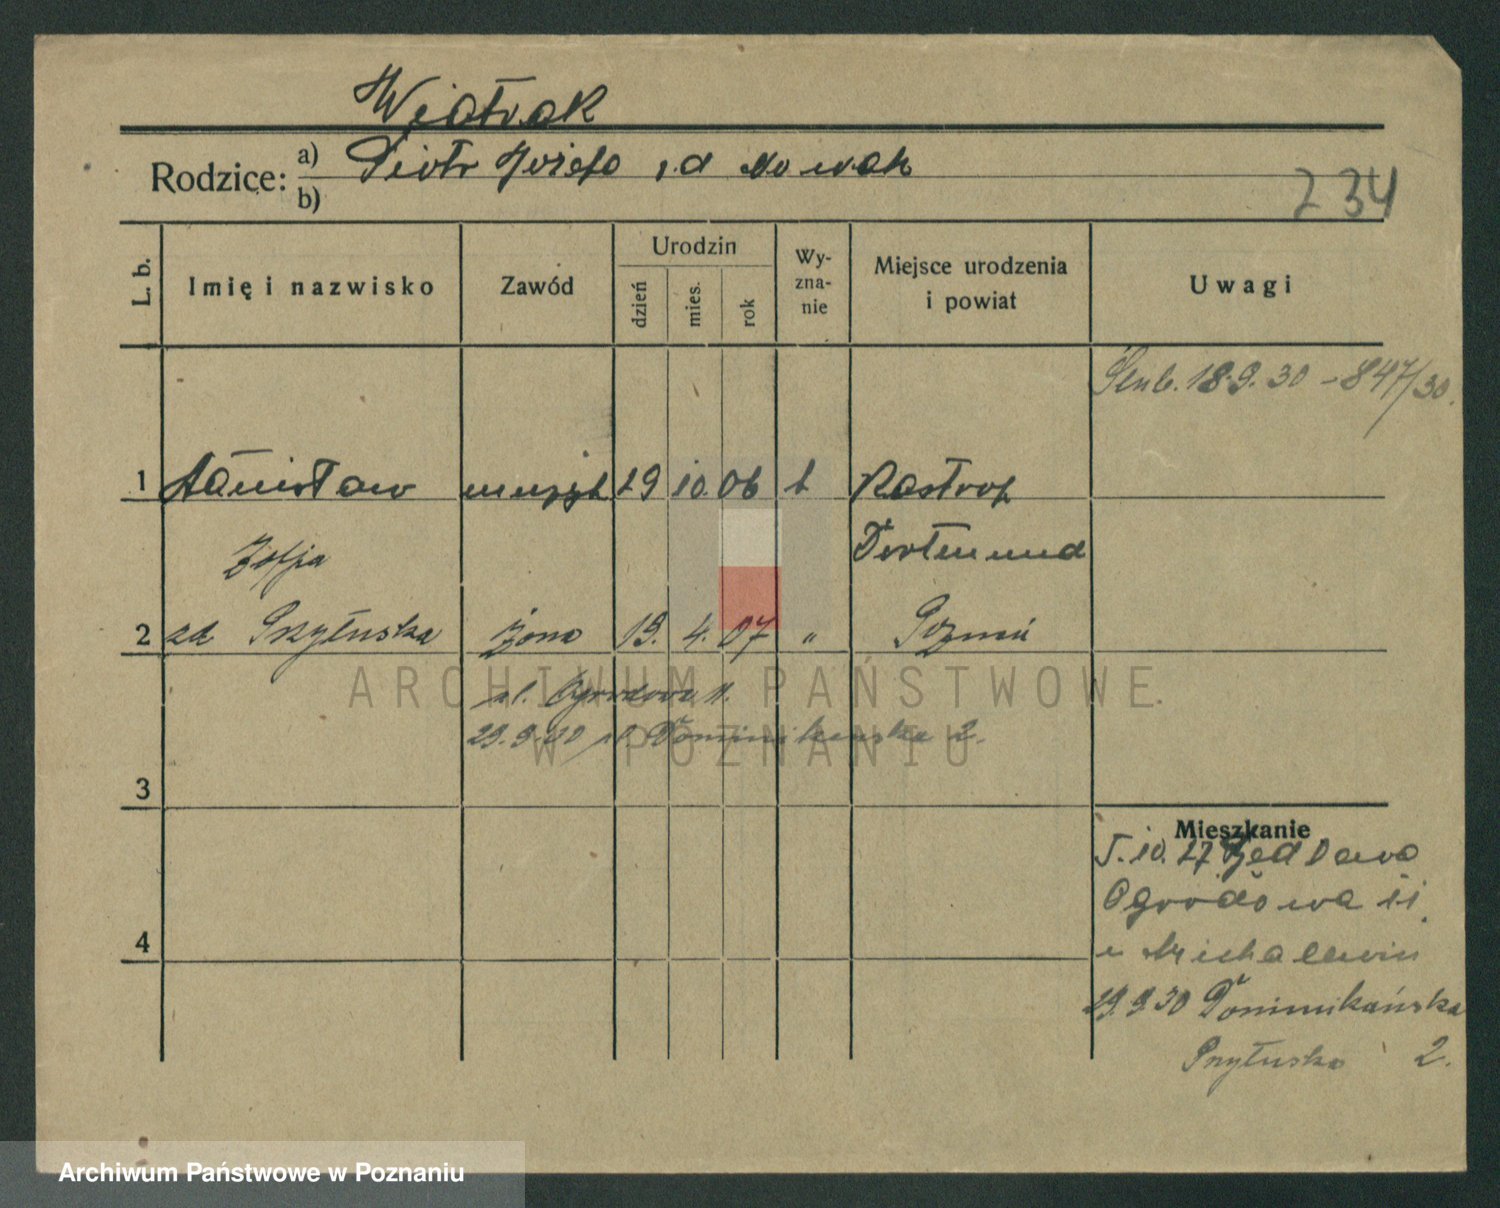 Wiatrak
Rodzice: a) Piotr Józefa z d Nowak
b)
234
L. b.
Imię i nazwisko
Zawód
Urodzin
dzień
mies.
rok
Wy-
zna-
nie
Miejsce urodzenia
i powiat
Uwagi
Ślub. 18.9.30 - 847/30.
1 Stanisław 29 10. 06 Kastrop
Zofja Dortmund
2 zd Przyłuska żona 19. 4. 07 " Poznań
ul. Ogrodowa 11.
29.9.30 ul. Dominikańska 2.
3
Mieszkanie
5.10.27
Ogrodowa 11.
4
29.9.30 Dominikańska
Przyłuska 2.
ARCHIWUM PAŃSTWOWE
W POZNANIU
Archiwum Państwowe w Poznaniu